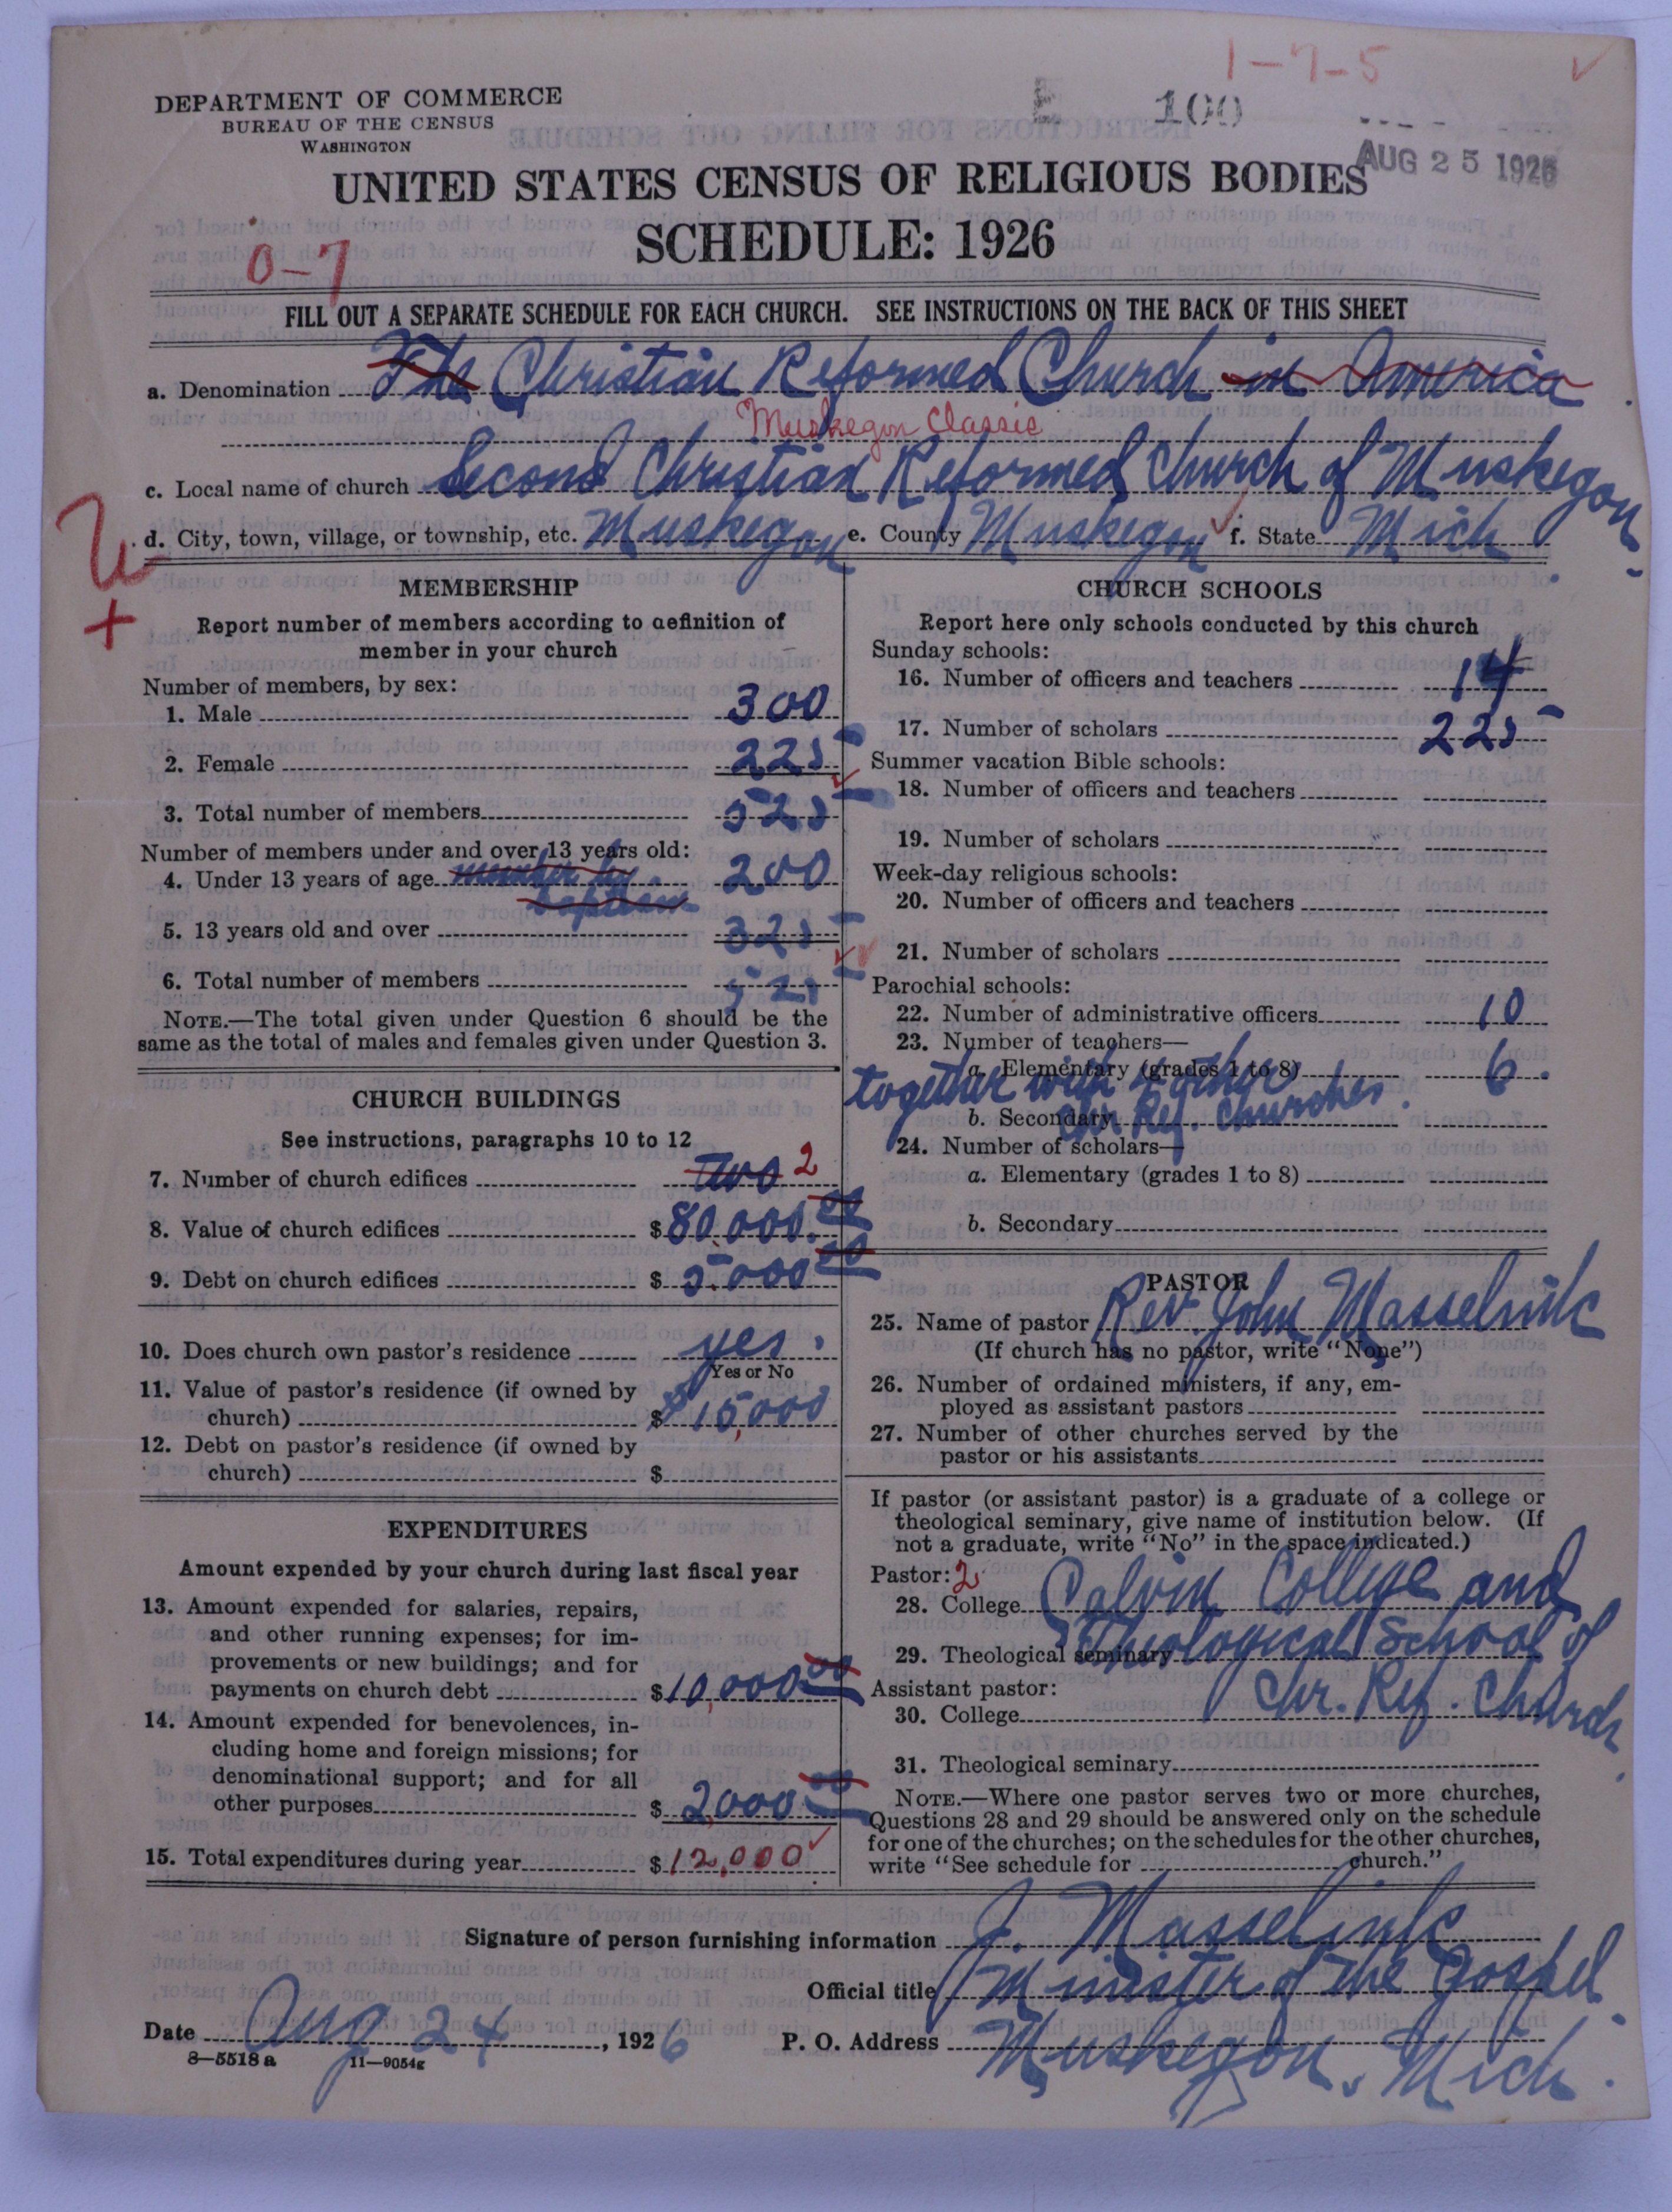 1-7-5
DEPARTMENT OF COMMERCE
BUREAU OF THE CENSUS
WASHINGTON
E 100
AUG 25 1926
UNITED STATES CENSUS OF RELIGIOUS BODIES
SCHEDULE: 1926
0-7
FILL OUT A SEPARATE SCHEDULE FOR EACH CHURCH. SEE INSTRUCTIONS ON THE BACK OF THIS SHEET
a. Denomination The Christian Reformed Church in America
Muskegon Classis
c. Local name of church Second Christian Reformed Church of Muskegon
d. City, town, village, or township, etc. Muskegon e. County Muskegon f. State Mich
MEMBERSHIP
Report number of members according to definition of
member in your church
Number of members, by sex:
1. Male 300
2. Female 225
3. Total number of members 525
Number of members under and over 13 years old:
4. Under 13 years of age member by 200
baptism
5. 13 years old and over 325
6. Total number of members 525
NOTE.—The total given under Question 6 should be the
same as the total of males and females given under Question 3.
CHURCH BUILDINGS
See instructions, paragraphs 10 to 12
7. Number of church edifices two 2
8. Value of church edifices $80,000.00
9. Debt on church edifices $5000 00
10. Does church own pastor's residence yes.
Yes or No
11. Value of pastor's residence (if owned by
church) $15,000
12. Debt on pastor's residence (if owned by
church) $
EXPENDITURES
Amount expended by your church during last fiscal year
13. Amount expended for salaries, repairs,
and other running expenses; for im-
provements or new buildings; and for
payments on church debt $10,000 00
14. Amount expended for benevolences, in-
cluding home and foreign missions; for
denominational support; and for all
other purposes $2,000 00
15. Total expenditures during year $12,000
CHURCH SCHOOLS
Report here only schools conducted by this church
Sunday schools:
16. Number of officers and teachers 14
17. Number of scholars 225
Summer vacation Bible schools:
18. Number of officers and teachers
19. Number of scholars
Week-day religious schools:
20. Number of officers and teachers
21. Number of scholars
Parochial schools:
22. Number of administrative officers 10
23. Number of teachers—
a. Elementary (grades 1 to 8) 6.
together with
b. Secondary
Chr. Ref. Churches.
24. Number of scholars—
a. Elementary (grades 1 to 8)
b. Secondary
PASTOR
25. Name of pastor Rev. John Masselink
(If church has no pastor, write "None")
26. Number of ordained ministers, if any, em-
ployed as assistant pastors
27. Number of other churches served by the
pastor or his assistants
If pastor (or assistant pastor) is a graduate of a college or
theological seminary, give name of institution below. (If
not a graduate, write "No" in the space indicated.)
Pastor: 2
28. College Calvin College and
29. Theological seminary Theological School of
Assistant pastor:
Chr. Ref. Church
30. College
31. Theological seminary
NOTE.—Where one pastor serves two or more churches,
Questions 28 and 29 should be answered only on the schedule
for one of the churches; on the schedules for the other churches,
write "See schedule for church."
Signature of person furnishing information J. Masselink
Official title Minister of the Gospel
Date Aug 24, 1926 P. O. Address Muskegon, Mich.
8—5518a 11—9054g